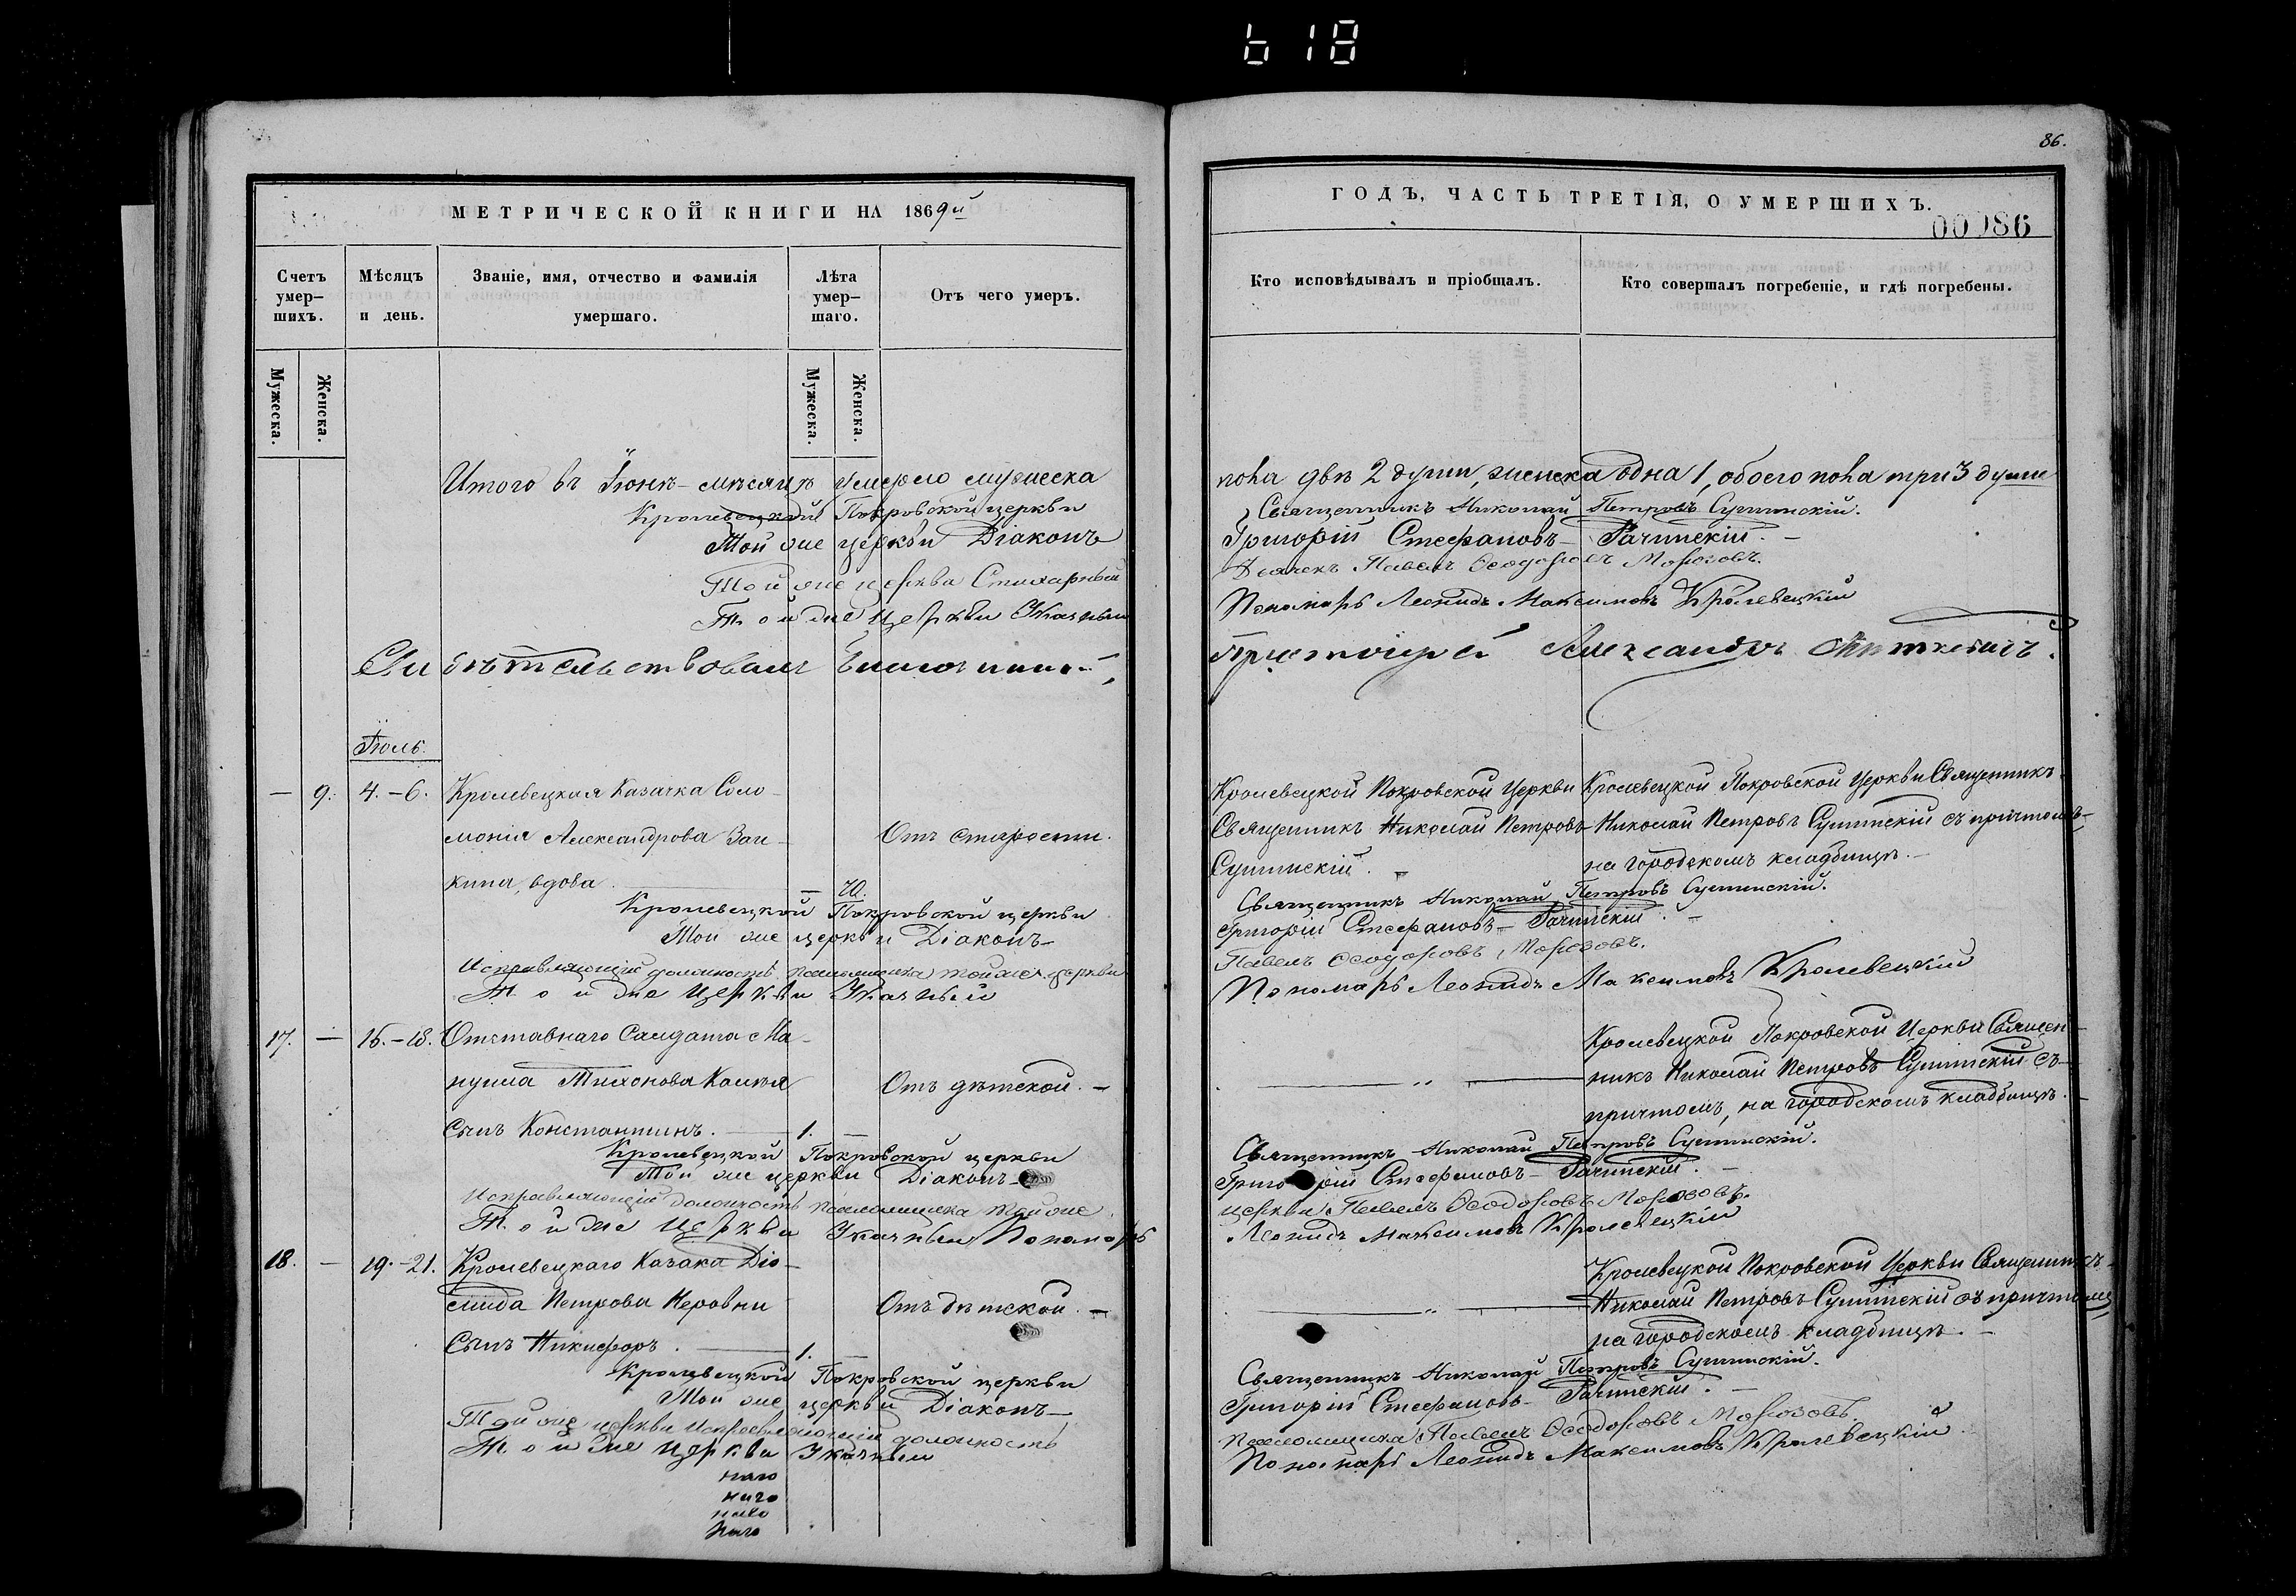 618
86.
МЕТРИЧЕСКОЙ КНИГИ НА 1869й
ГОДЪ, ЧАСТЬ ТРЕТІЯ, О УМЕРШИХЪ.
00086
Счетъ умер-шихъ.
Мѣсяцъ и день.
Званіе, имя, отчество и фамилія умершаго.
Лѣта умер-шаго.
Отъ чего умеръ.
Кто исповѣдывалъ и пріобщалъ.
Кто совершалъ погребеніе, и гдѣ погребены.
Мужеска.
Женска.
Мужеска.
Женска.
Итого въ Іюнѣ мѣсяцѣ умерло мужеска
пола двѣ 2 души, женска одна 1, обоего пола три 3 души
Кролевецкой Покровской церкви
Священникъ Николай Петровъ
Той же церкви Діаконъ
Григорій Стефановъ
Той же церкви Стихарный
Дьячекъ Павелъ Ѳеодоровъ Морозовъ.
Той же церкви Указный
Пономарь Леонидъ Максимовъ Кролевецкій
Свидѣтельствовалъ
Александръ
Іюль.
— 9. 4.-6. Кролевецкая Казачка Соло-
монія Александрова
вдова — 70.
Отъ старости.
Кролевецкой Покровской Церкви
Священникъ Николай Петровъ
Кролевецкой Покровской Церкви Священникъ
Николай Петровъ съ причтомъ
на городскомъ кладбищѣ.
Кролевецкой Покровской церкви
Священникъ Николай Петровъ
Той же церкви Діаконъ
Григорій Стефановъ
Исправляющій должность псаломщика той же церкви
Павелъ Ѳеодоровъ Морозовъ.
Той же церкви Указный
Пономарь Леонидъ Максимовъ Кролевецкій
17. — 16.-18. Отставнаго Салдата Ма-
нуила Тихонова
сынъ Константинъ. 1. —
Отъ дѣтской. —
Кролевецкой Покровской Церкви Священ-
никъ Николай Петровъ съ
причтомъ, на городскомъ кладбищѣ.
Кролевецкой Покровской церкви
Священникъ Николай Петровъ
Той же церкви Діаконъ
Григорій Стефановъ
Исправляющій должность псаломщика той же
церкви Павелъ Ѳеодоровъ Морозовъ.
Той же церкви Указный Пономарь
Леонидъ Максимовъ Кролевецкій
18. — 19.-21. Кролевецкаго Казака Діо-
мида Петрова
сынъ Никифоръ. 1. —
Отъ дѣтской. —
Кролевецкой Покровской Церкви Священникъ
Николай Петровъ съ причтомъ
на городскомъ кладбищѣ. —
Кролевецкой Покровской церкви
Священникъ Николай Петровъ
Той же церкви Діаконъ
Григорій Стефановъ
Той же церкви исправляющій должность
псаломщика Павелъ Ѳеодоровъ Морозовъ
Той же церкви Указный
Пономарь Леонидъ Максимовъ Кролевецкій